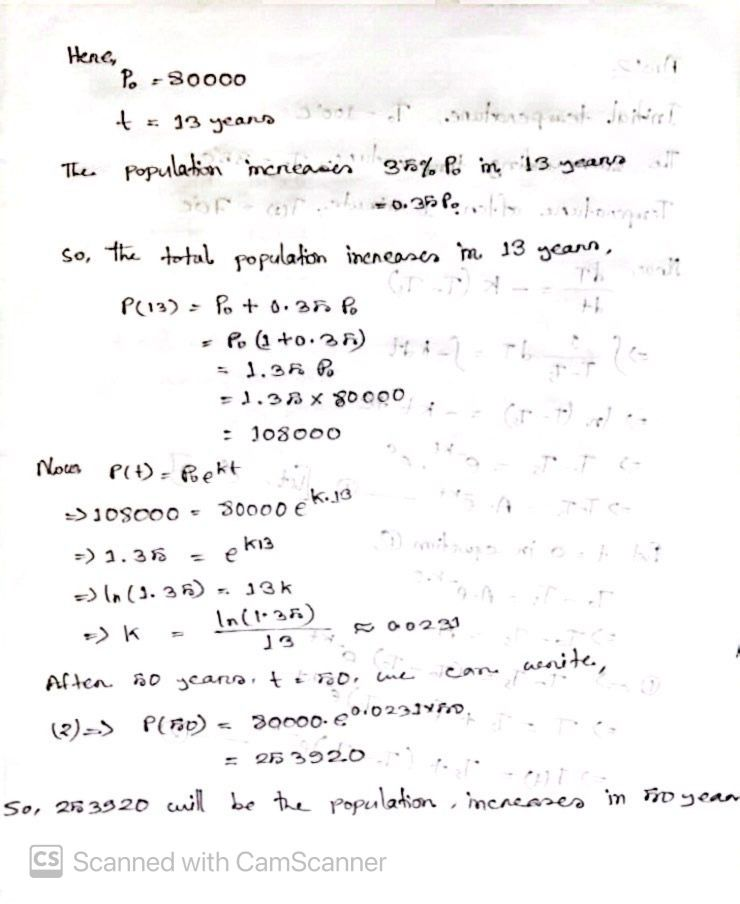 Here,
P₀ = 80000
t = 13 years
The population increases 35% P₀ in 13 years
= 0.35 P₀
So, the total population increases in 13 years,
P(13) = P₀ + 0.35 P₀
= P₀ (1 + 0.35)
= 1.35 P₀
= 1.35 × 80000
= 108000
Now P(t) = P₀e^kt
=> 108000 = 80000 e^k.13
=> 1.35 = e^k13
=> ln(1.35) = 13k
=> k = ln(1.35)/13 ≈ 0.0231
After 50 years, t = 50, we can write,
(2)=> P(50) = 80000. e^0.0231×50
= 253920
So, 253920 will be the population, increases in 50 year
CS Scanned with CamScanner